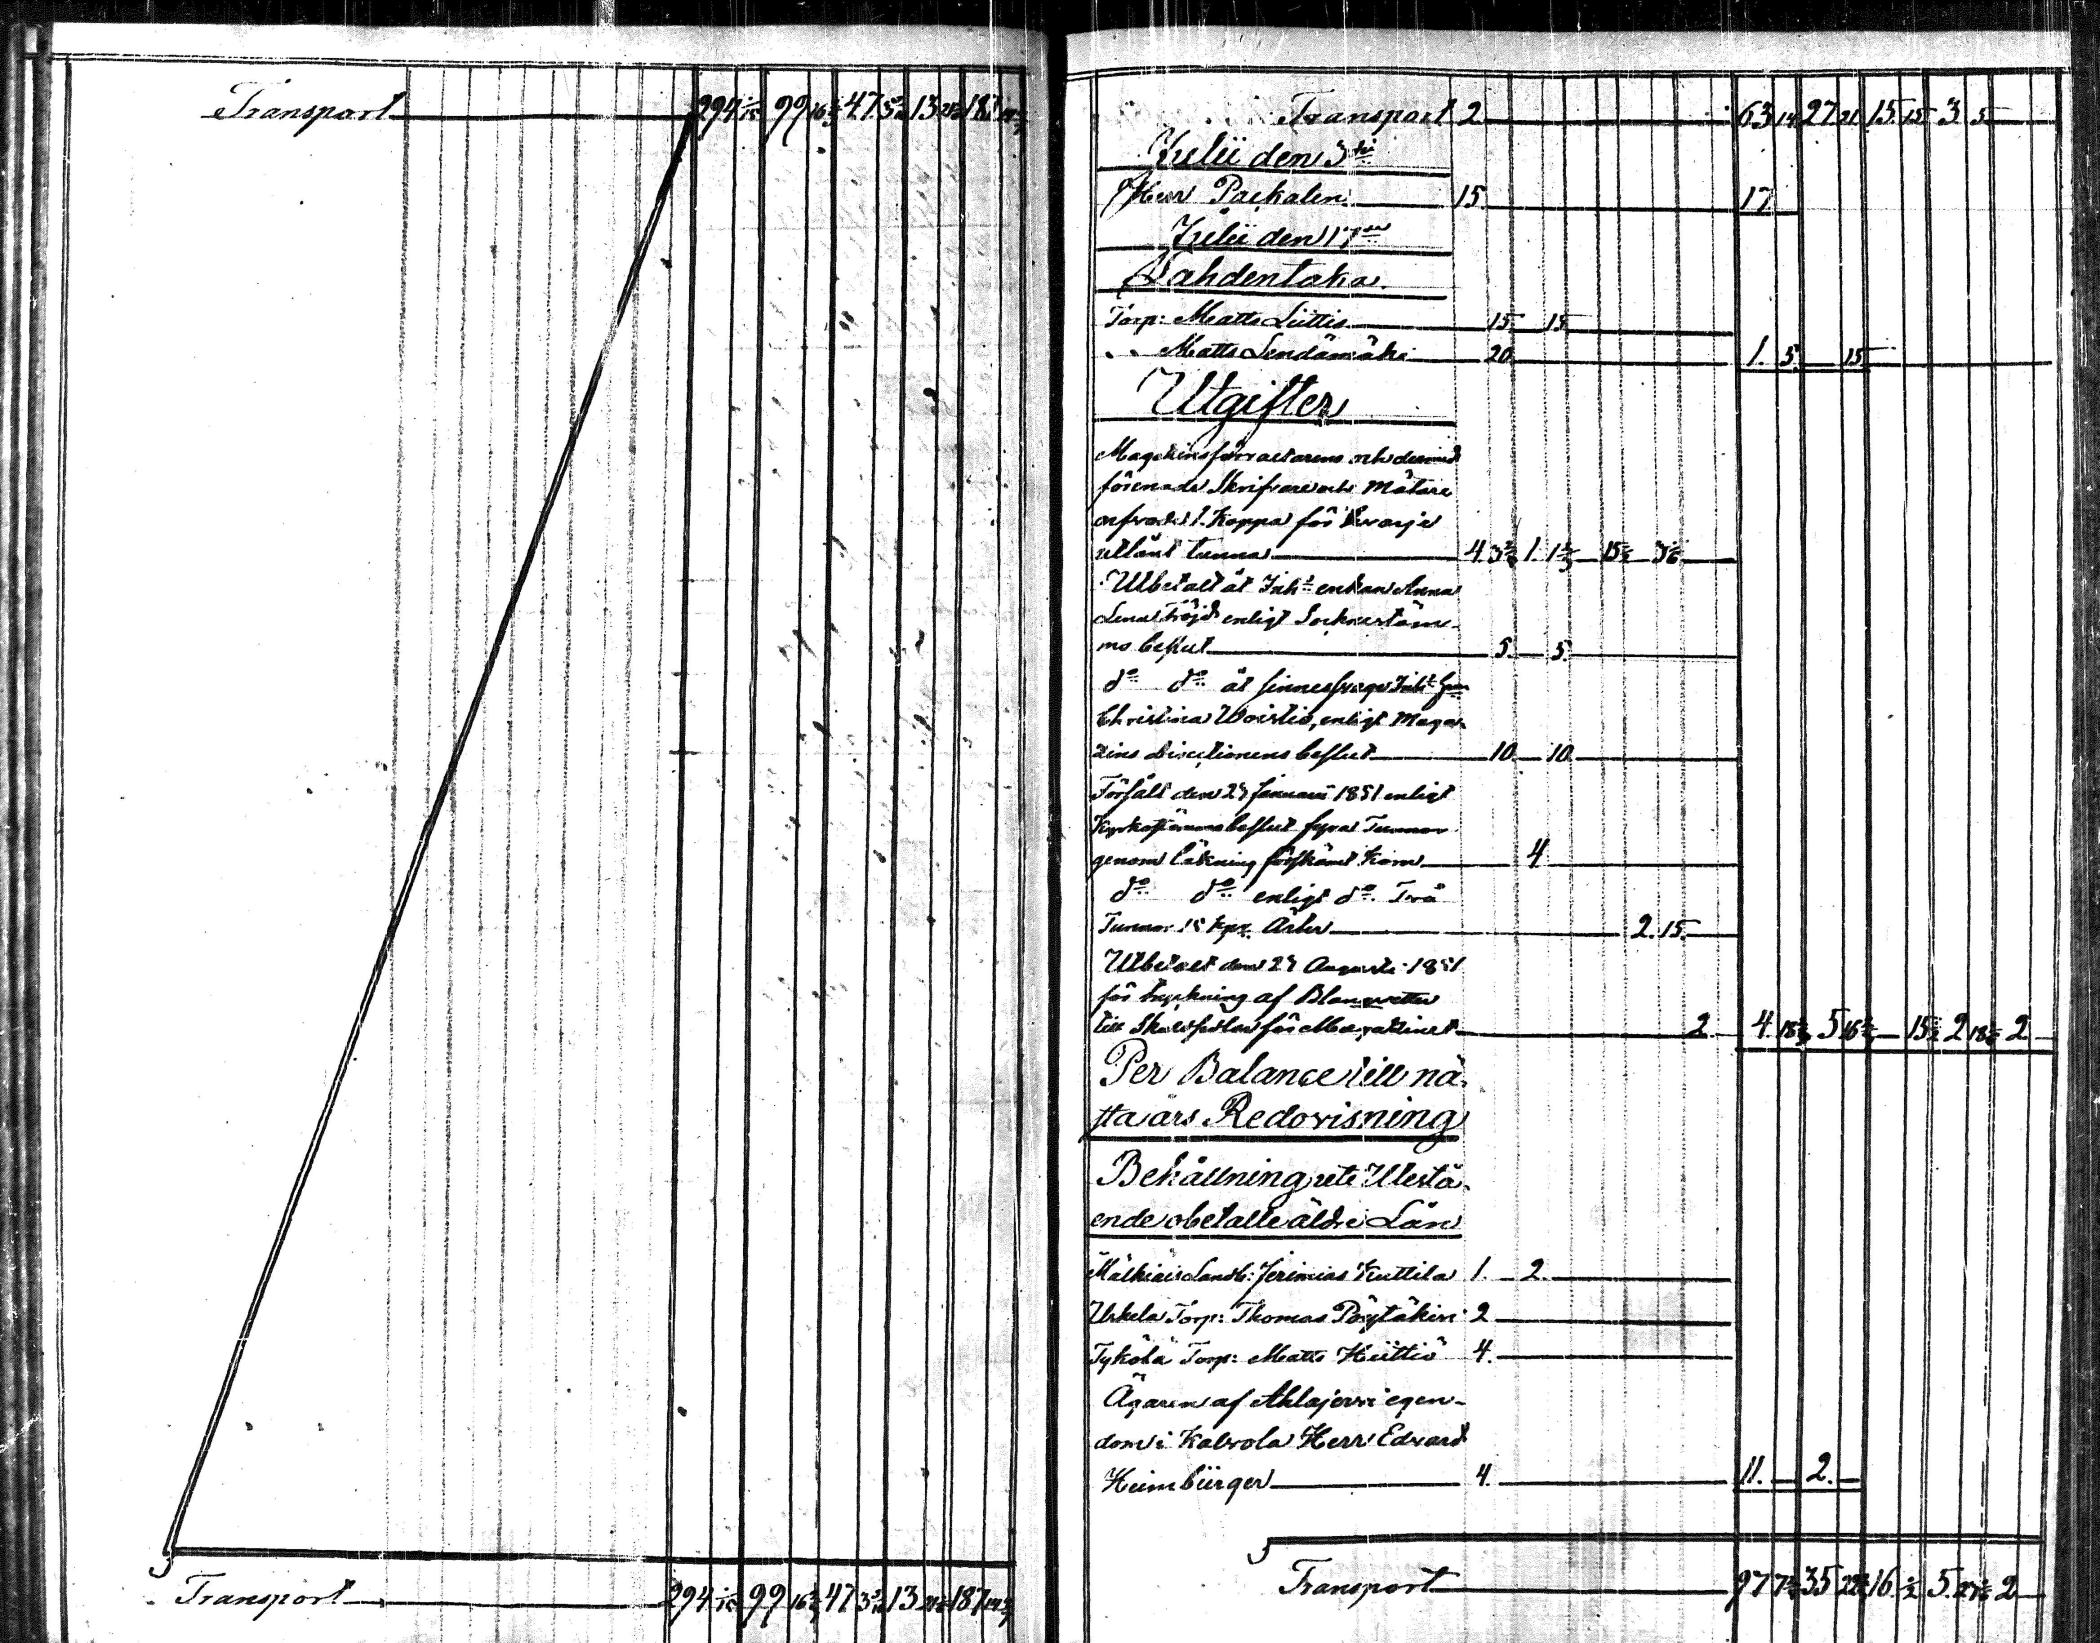 Transport 294 99 16 47 13 187
Transport 294 99 16 47 13 187
Transport 2 63 14 27 21 15 15 3 5
Julii den 3die
Herr Packalen 15 17
Julii den 17de
Lahdentaka
Torp: Matts Liittis 15 15
" " Matts Lendämäki 20 1. 5. 15
Utgifter
Magazinsförvaltarens och dermed
förenade Skrifvare och Mätare
arfvode 1. Kappa för hvarje
utlånt tunna 4. 3 1. 1 15 3
Utbetalt åt Inh: enkan Anna
Lena Fröjd enligt Sockenstäm-
mo beslut 5. 5.
do do åt sinnessvaga Inh:
Christina Woistio, enligt Maga-
zins Directionens beslut 10. 10.
Försålt den 27 Januarii 1851 enligt
Kyrkostämmobeslut fyra Tunnor
genom läkning förskämt Korn 4
do do enligt do Två
Tunnor 15 kpr. Ärter 2. 15.
Utbetalt den 27 Augusti 1851
för tryckning af Blanquetter
till Skuldsedlar för Magazinet 2. 4. 18 5 16 15 2 18 2.
Per Balance till nä-
sta års Redovisning
Behållning uti Utestå-
ende obetalte äldre Lån
Mälkiäis Landb: Jeremias Kuttila 1. 2.
Urkela Torp: Thomas Pöytäkivi 2
Tykölä Torp: Matts Hiittiö 4.
Ägaren af Ahlajervi egen-
dom i Kalvola Herr Edvard
Heimbürger 4. 11. 2.
Transport 97 7 35 22 16 5. 2